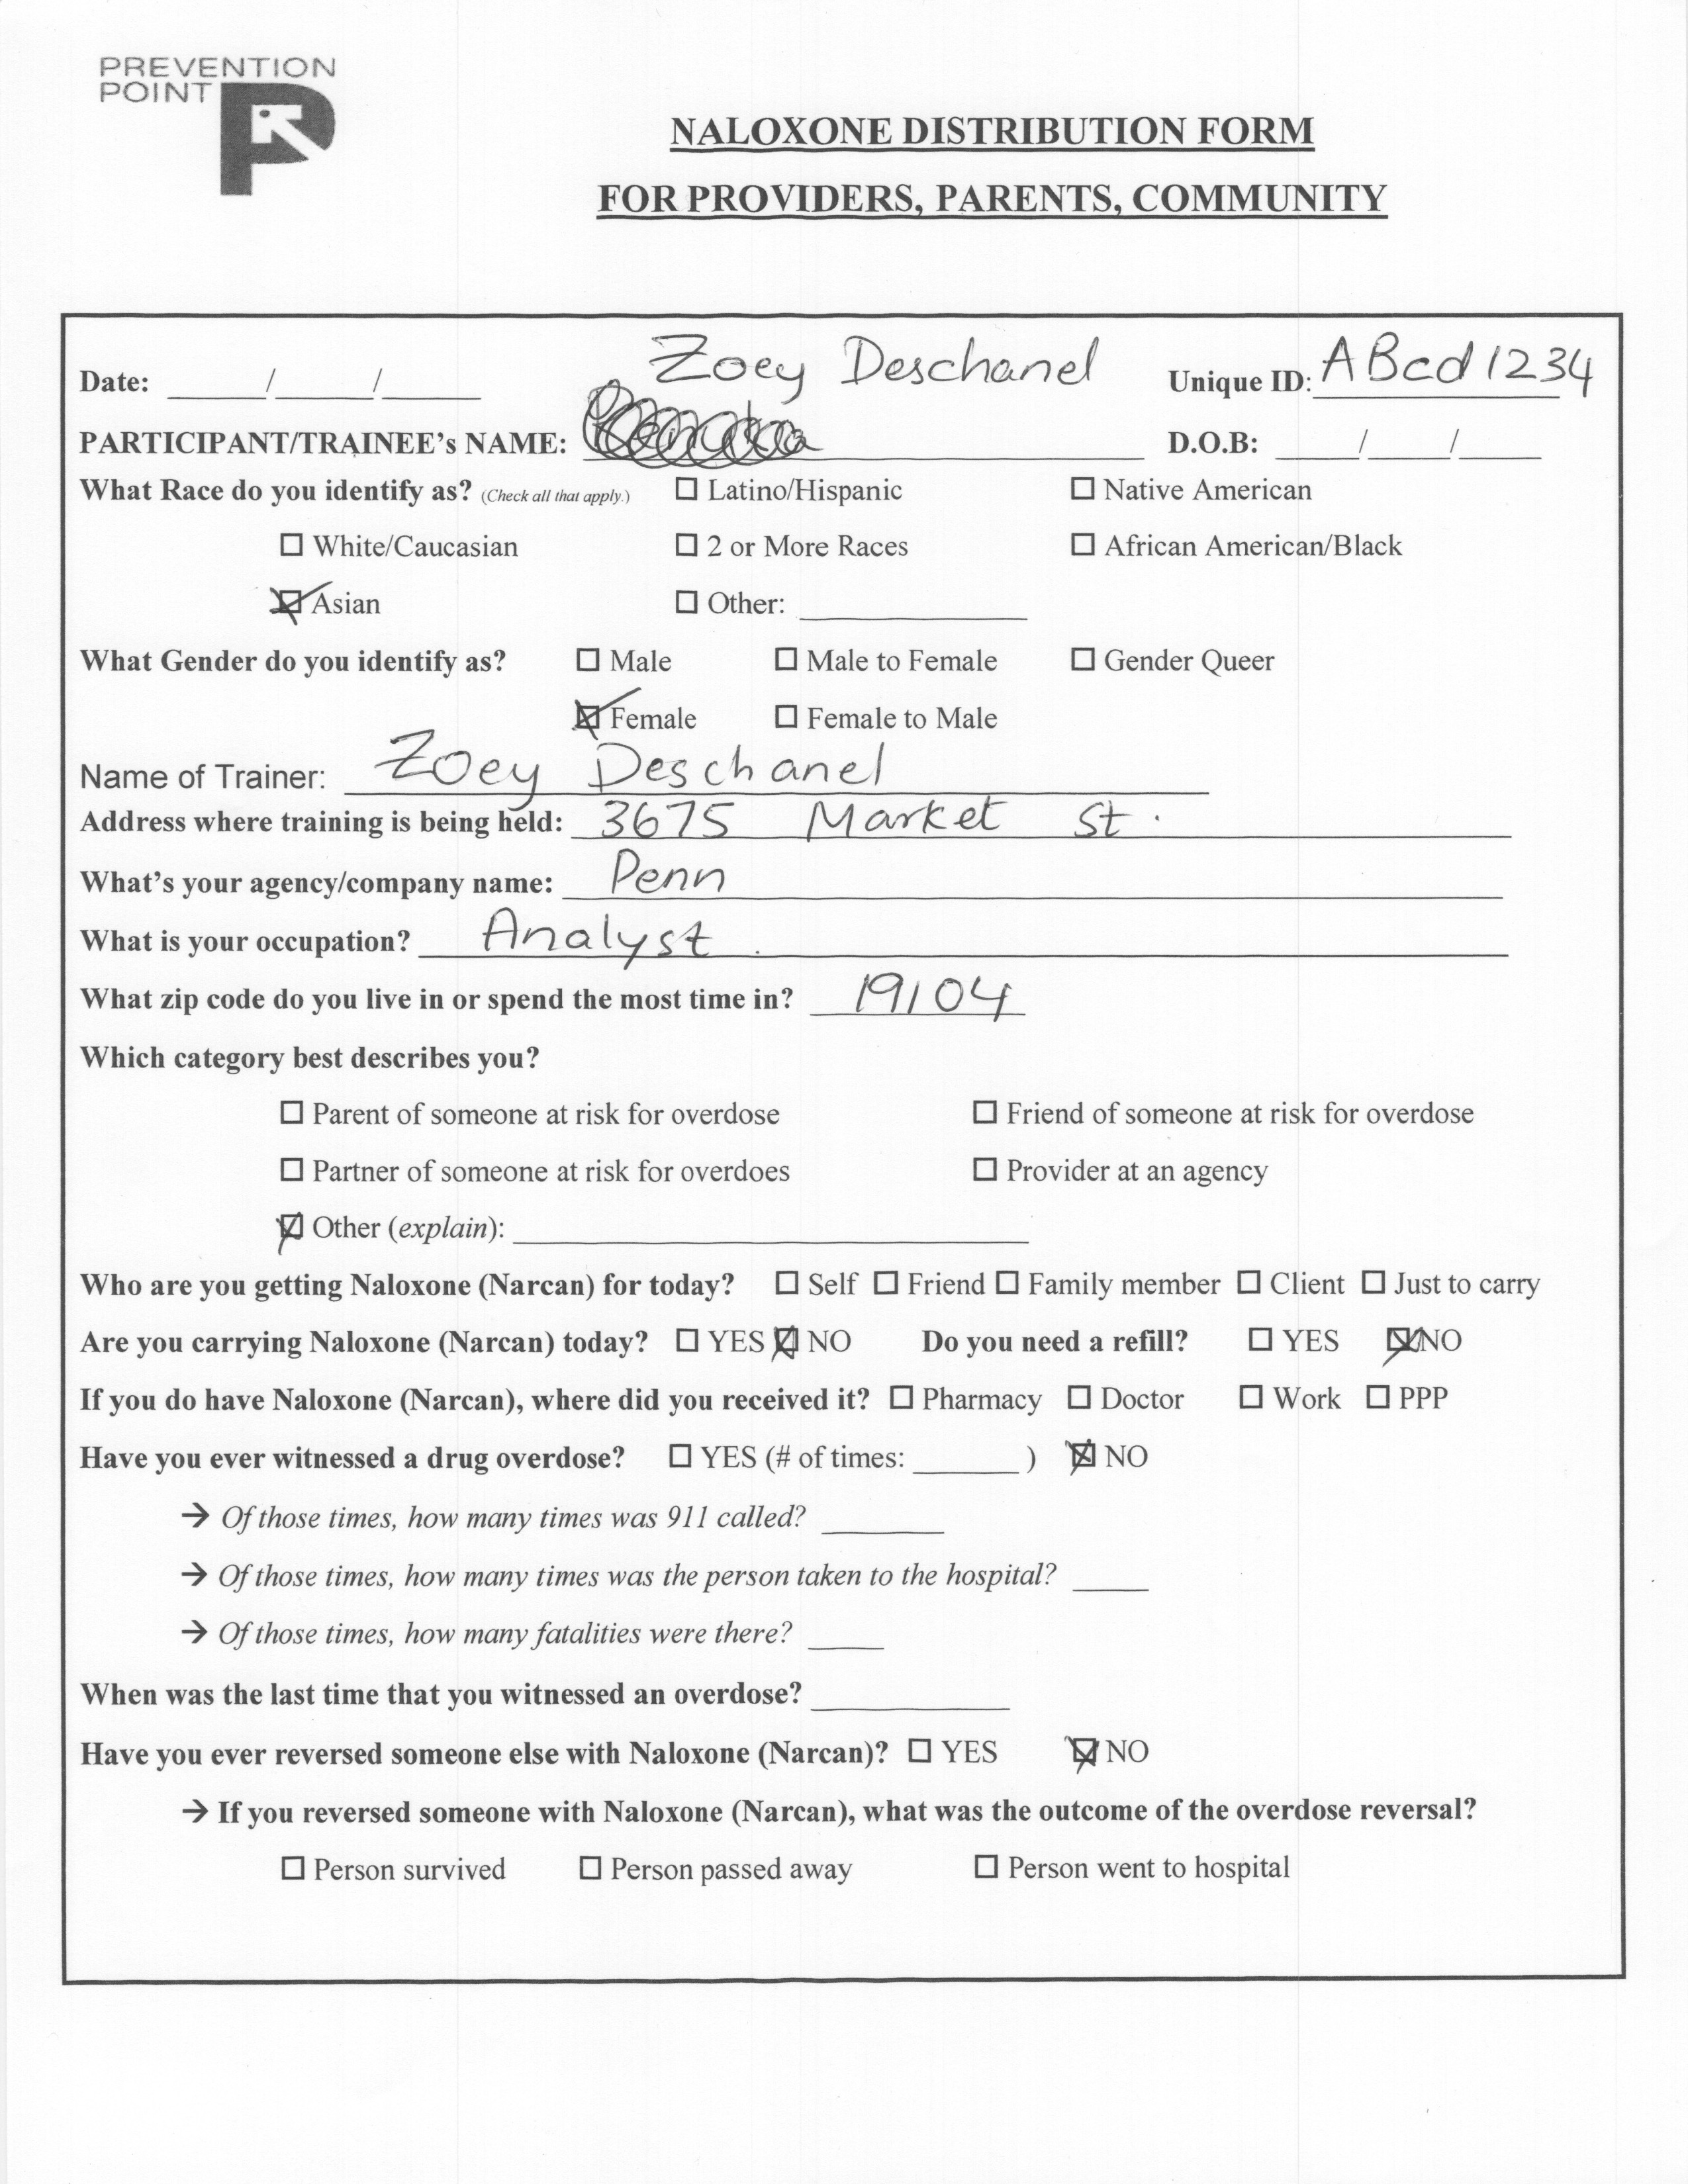 PREVENTION
POINT
NALOXONE DISTRIBUTION FORM
FOR PROVIDERS, PARENTS, COMMUNITY
Date: ______/______/______ Zoey Deschanel Unique ID: ABcd1234
PARTICIPANT/TRAINEE's NAME: D.O.B: _____/_____/_____
What Race do you identify as? (Check all that apply.) ☐ Latino/Hispanic ☐ Native American
☐ White/Caucasian ☐ 2 or More Races ☐ African American/Black
☒ Asian ☐ Other: ______________
What Gender do you identify as? ☐ Male ☐ Male to Female ☐ Gender Queer
☒ Female ☐ Female to Male
Name of Trainer: Zoey Deschanel
Address where training is being held: 3675 Market St.
What's your agency/company name: Penn
What is your occupation? Analyst
What zip code do you live in or spend the most time in? 19104
Which category best describes you?
☐ Parent of someone at risk for overdose ☐ Friend of someone at risk for overdose
☐ Partner of someone at risk for overdoes ☐ Provider at an agency
☒ Other (explain): ______________
Who are you getting Naloxone (Narcan) for today? ☐ Self ☐ Friend ☐ Family member ☐ Client ☐ Just to carry
Are you carrying Naloxone (Narcan) today? ☐ YES ☒ NO Do you need a refill? ☐ YES ☒ NO
If you do have Naloxone (Narcan), where did you received it? ☐ Pharmacy ☐ Doctor ☐ Work ☐ PPP
Have you ever witnessed a drug overdose? ☐ YES (# of times: _______ ) ☒ NO
→ Of those times, how many times was 911 called? ________
→ Of those times, how many times was the person taken to the hospital? _____
→ Of those times, how many fatalities were there? _____
When was the last time that you witnessed an overdose? _____________
Have you ever reversed someone else with Naloxone (Narcan)? ☐ YES ☒ NO
→ If you reversed someone with Naloxone (Narcan), what was the outcome of the overdose reversal?
☐ Person survived ☐ Person passed away ☐ Person went to hospital